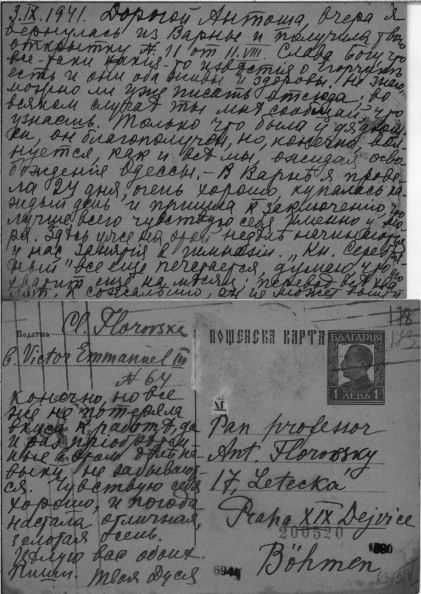 3.IX.1941. Дорогой Антоша, вчера я
вернулась из Варны и получила твою
открытку № 11 от 11.VIII. Слава Богу что
все-таки какия-то известия о Георгии
есть и они оба живы и здоровы. Не знаю,
можно ли уже писать отсюда, во
всяком случае ты мне сообщай, что
узнаешь. Только что была у дядюш-
ки, он благополучен, но, конечно, вол-
нуется, как и все мы, ожидая осво-
бождения Одессы. – В Варне я прове-
ла 24 дня, очень хорошо, купалась ка-
ждый день и пришла к заключению, что
лучше всего чувствую себя именно у мо-
ря. Здесь уже на этой неделе начинаются
у нас занятия в гимназии. "Кн. Серебря-
ный" все еще печатается, думаю, что
хватит еще на месяц; перевод все хва-
лят. К сожалению, он не может быть и
Cl. Florovska
б. Victor Emmanuel III
№ 64
ПОЩЕНСКА КАРТА
БЪЛГАРИЯ
1 ЛЕВЪ 1
178
183
конечно, но все
же не потеряла
вкуса к работе, да
и раз приобретен-
ные в этом деле на-
выки не забывают-
ся. Чувствую себя
хорошо, и погода
настала отличная,
золотая осень.
Целую вас обоих.
Пиши. Твоя Дуся
XI
Pan profesor
Ant. Florovsky
17, Letecká
Praha XIX Dejvice
200520
Böhmen
6944